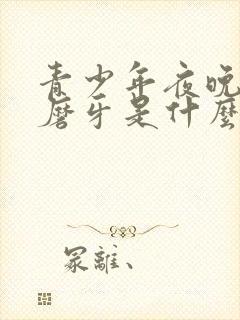 青少年夜晚
磨牙是什麼
冢離、